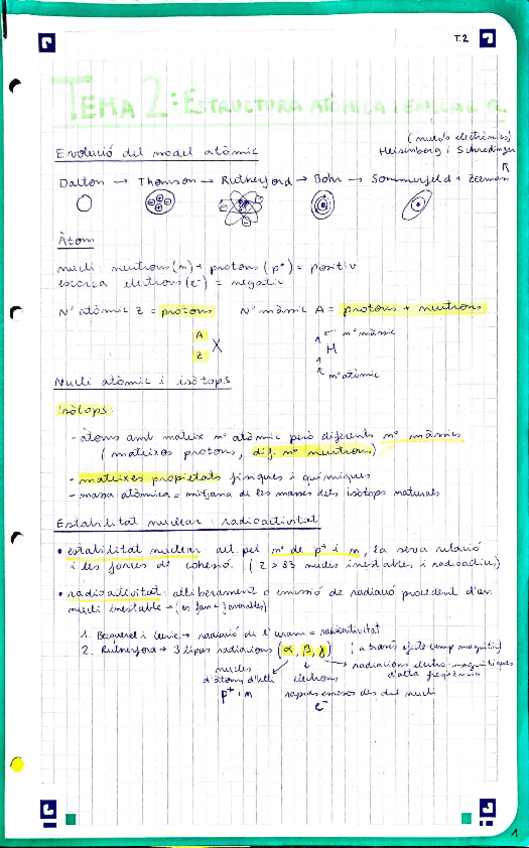 T.2
TEMA 2: ESTRUCTURA ATÒMICA I ENLLAÇ Q
(nuclis electrònics)
Evolució del model atòmic
Heisenberg i Schrodinger
Dalton → Thomson → Rutherford → Bohr → Sommerfeld + Zeeman
Àtom
nucli: neutrons (n) + protons (p⁺) = positiu
escorça electrons (e⁻) = negatiu
Nº atòmic Z = protons Nº màssic A = protons + neutrons
A nº màssic
X H
Z nº atòmic
Nucli atòmic i isòtops
Isòtops:
- àtoms amb mateix nº atòmic però diferents nº màssics
(mateixos protons, dif. nº neutrons)
- mateixes propietats físiques i químiques
- massa atòmica = mitjana de les masses dels isòtops naturals
Estabilitat nuclear: radioactivitat
• estabilitat nuclear pel nº de p⁺ i n, la seva relació
i les forces de cohesió. (Z > 83 nuclis inestables i radioactius)
• radioactivitat: alliberament o emissió de radiació procedent d'un
nucli inestable → (es fan + estables)
1. Becquerel i Curie → radiació de l'urani = radioactivitat
2. Rutherford → 3 tipus radiacions (α, β, γ) a través efecte camp magnètic
nuclis electrons radiacions electro-magnètiques
d'àtoms d'heli d'alta freqüència
p⁺ i n ràpids emesos des del nucli
e⁻
1